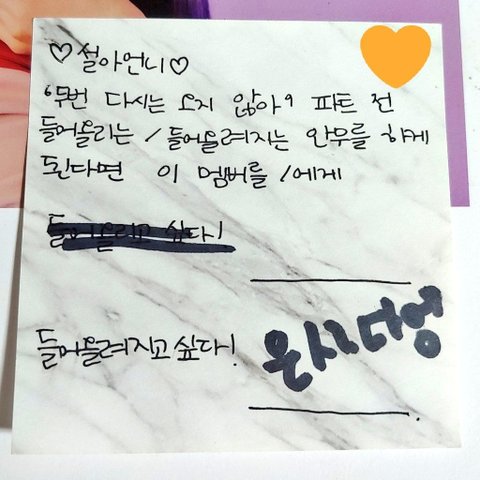 ♡설아언니♡
'두번 다시는 오지 않아' 파트 전
들어올리는 / 들어올려지는 안무를 하게
된다면 이 멤버를 / 에게
들어올리고 싶다!
들어올려지고싶다!